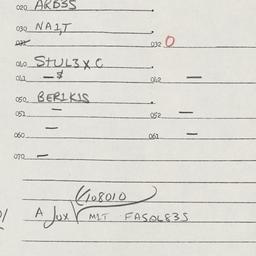 020 ARD3S
030 NA1,T
031 032 O
040 STUL3 X C
041 — $ 042 —
050 BER1K1S
051 — 052 —
060 — 061 —
070 —
108010
A Jux MIT FASOL83S